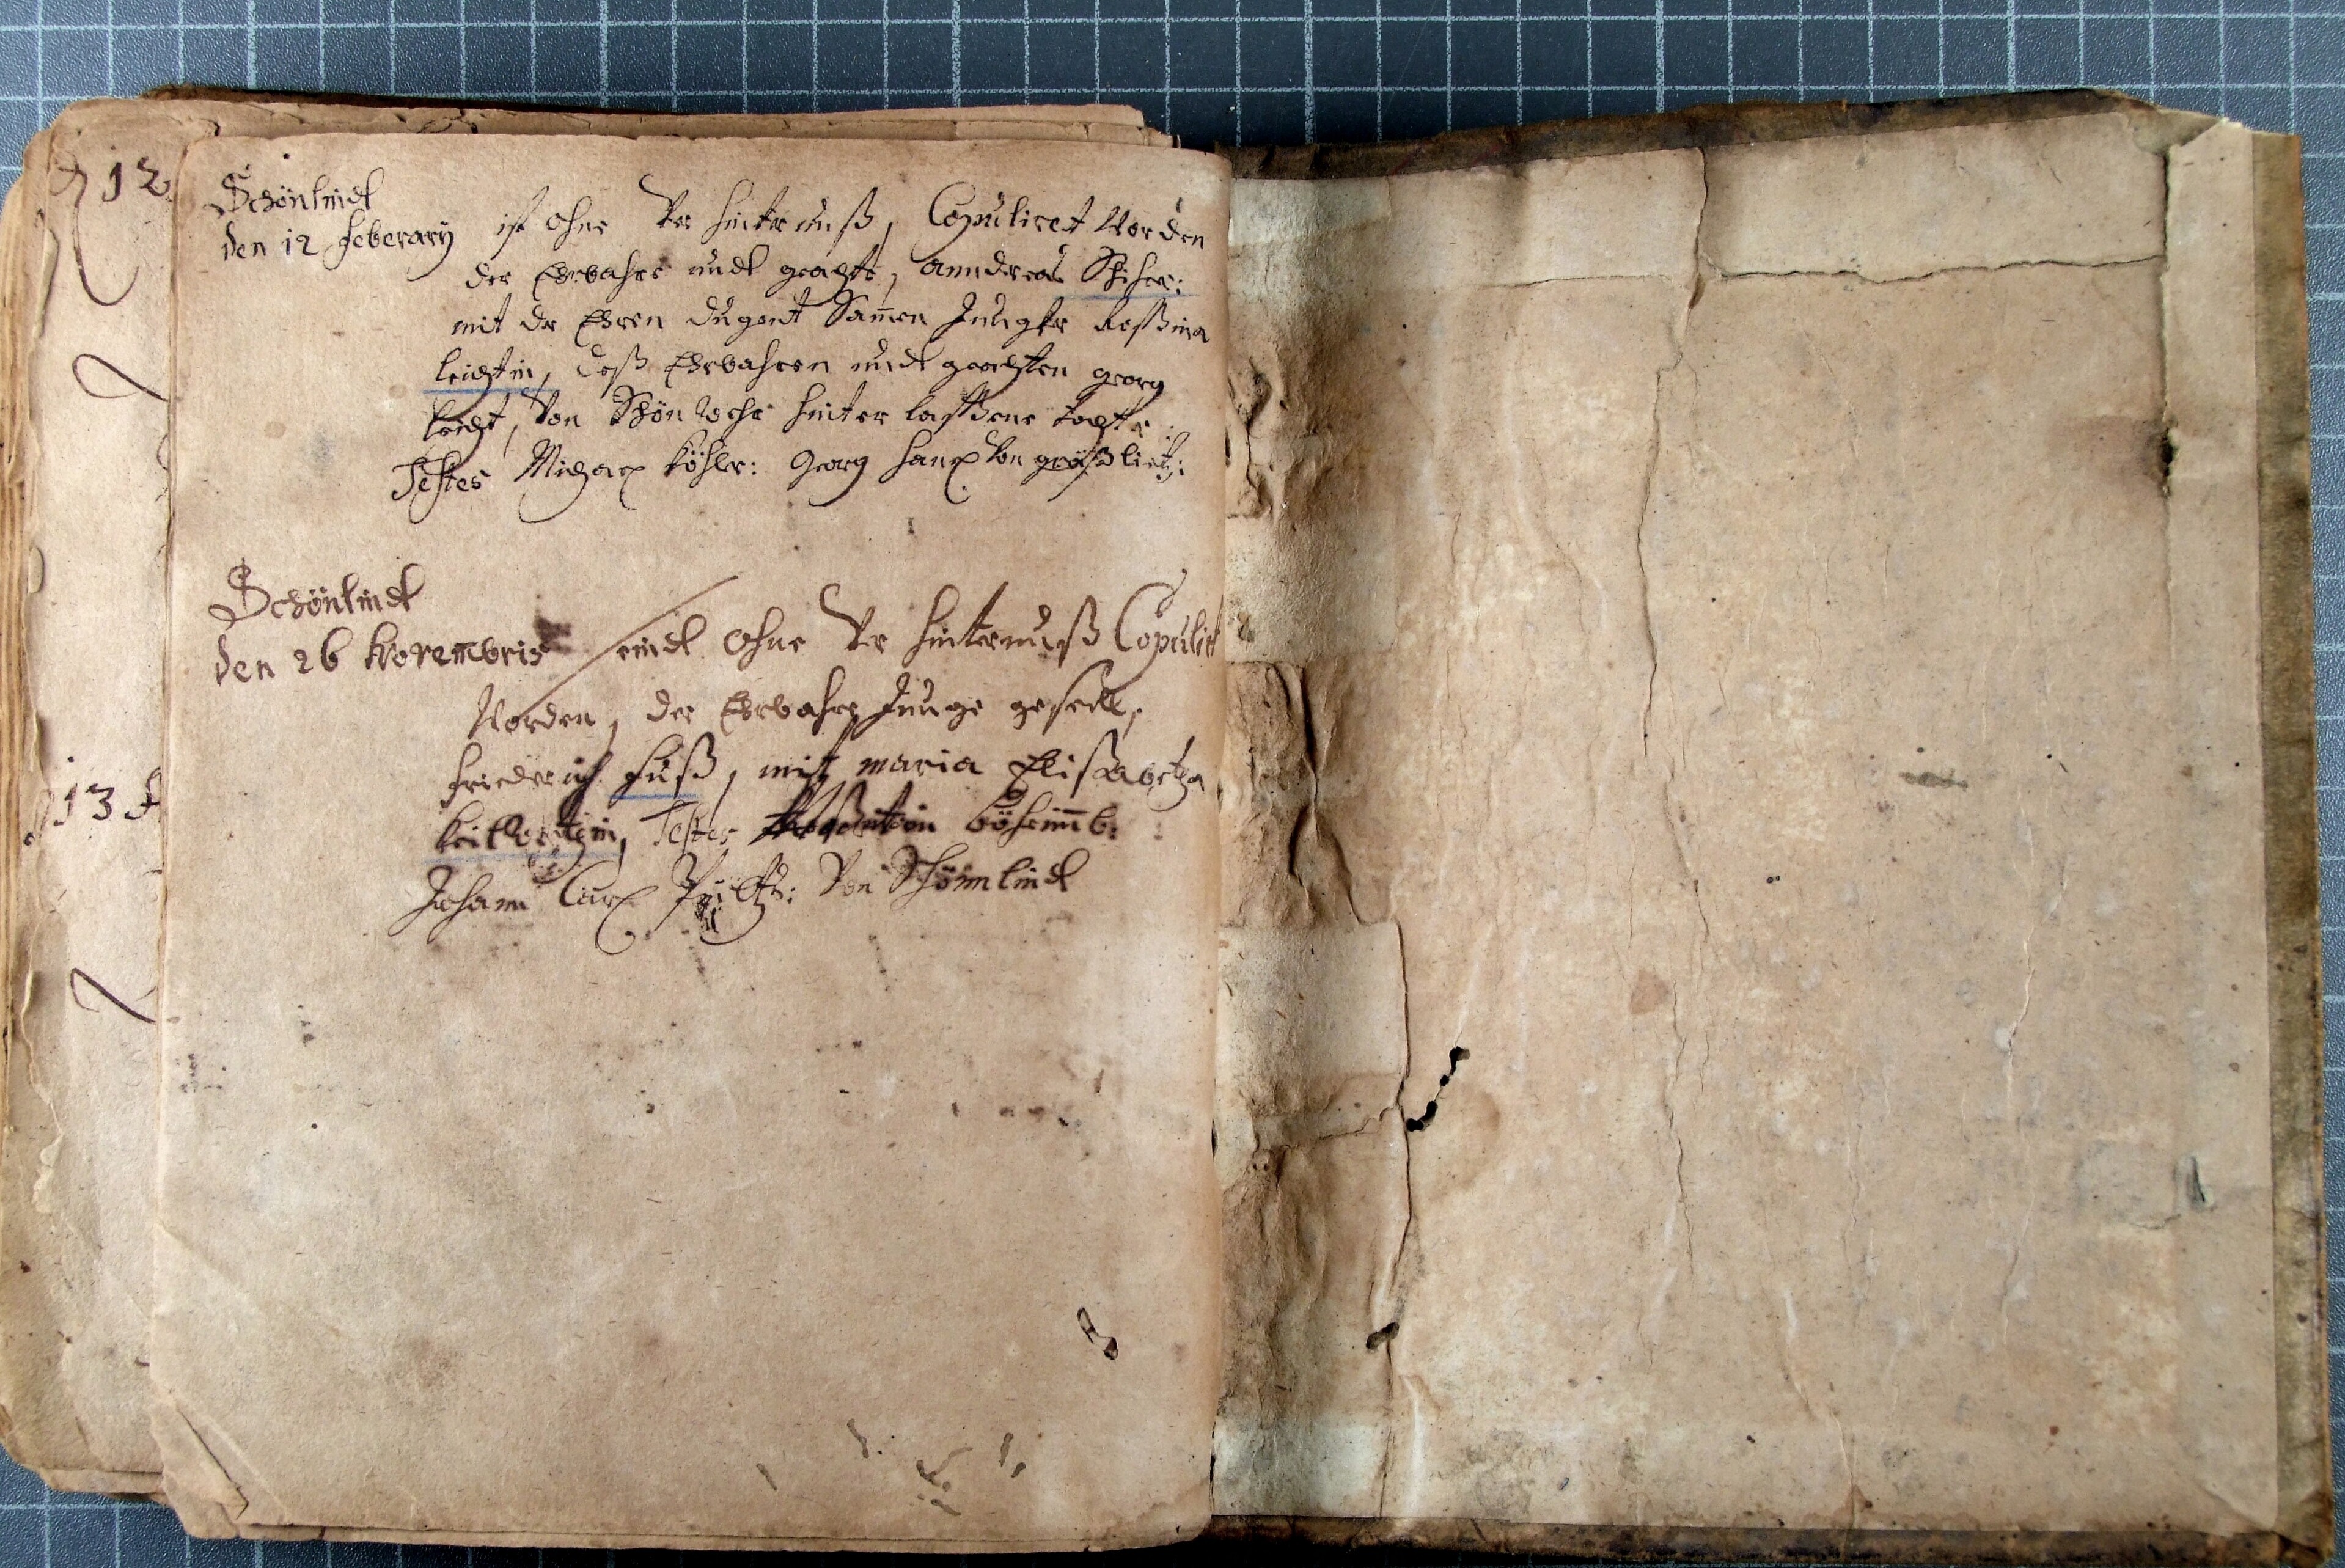 12
Schönlindt
den 12 Feberary ist ohne Ver hinternuß, Copuliret Worden
der Ehrbahre undt geachte, anndreas Schiher:
mit der Ehren dugent Samen Jungfer Roßina
leichtin, deß Ehrbahren undt geachten georg
leicht, Von Schön Wehr hinter laßene tochter
Testes Michael Köhler: Georg hanß Von graßlietz:
Schönlindt
den 26 Novembris seindt ohne Ver hinternuß Copulirt
Worden, der Ehrbahre Junge gesell,
Friederich Fuß, mit maria Elisabetha
Testes böhemb:
Johann Carl Von Schönnlindt
13